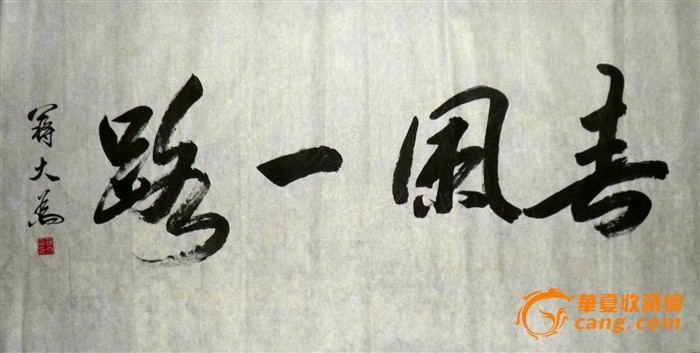 春風一路
蒋大為
華夏收藏網
cang.com